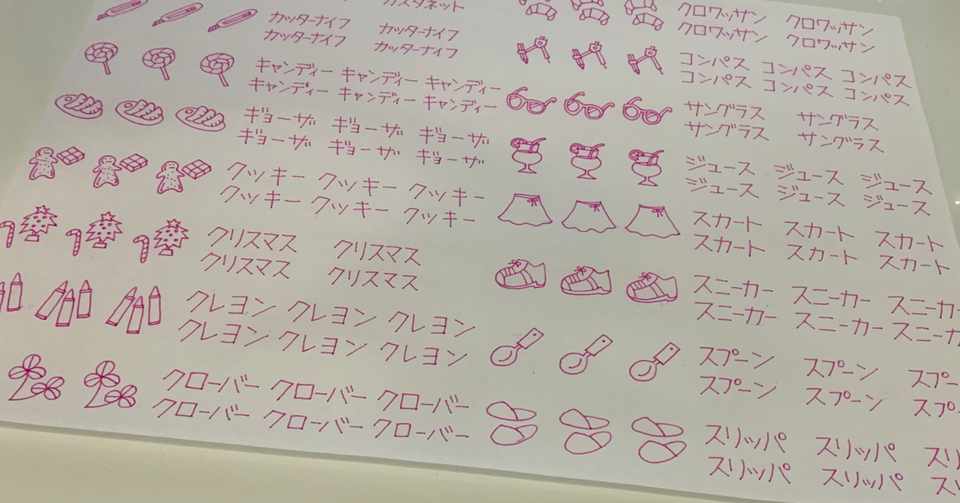 カスタネット
カッターナイフ カッターナイフ
カッターナイフ カッターナイフ
キャンディー キャンディー キャンディー
キャンディー キャンディー キャンディー
ギョーザ ギョーザ ギョーザ
ギョーザ ギョーザ ギョーザ
クッキー クッキー クッキー
クッキー クッキー クッキー
クリスマス クリスマス
クリスマス クリスマス
クレヨン クレヨン クレヨン
クレヨン クレヨン クレヨン
クローバー クローバー クローバー
クローバー クローバー クローバー
クロワッサン クロワッサン
クロワッサン クロワッサン
コンパス コンパス コンパス
コンパス コンパス コンパス
サングラス サングラス
サングラス サングラス
ジュース ジュース ジュース
ジュース ジュース ジュース
スカート スカート スカート
スカート スカート スカート
スニーカー スニーカー スニーカ
スニーカー スニーカー スニーカ
スプーン スプーン スプー
スプーン スプーン スプー
スリッパ スリッパ スリ
スリッパ スリッパ スリ